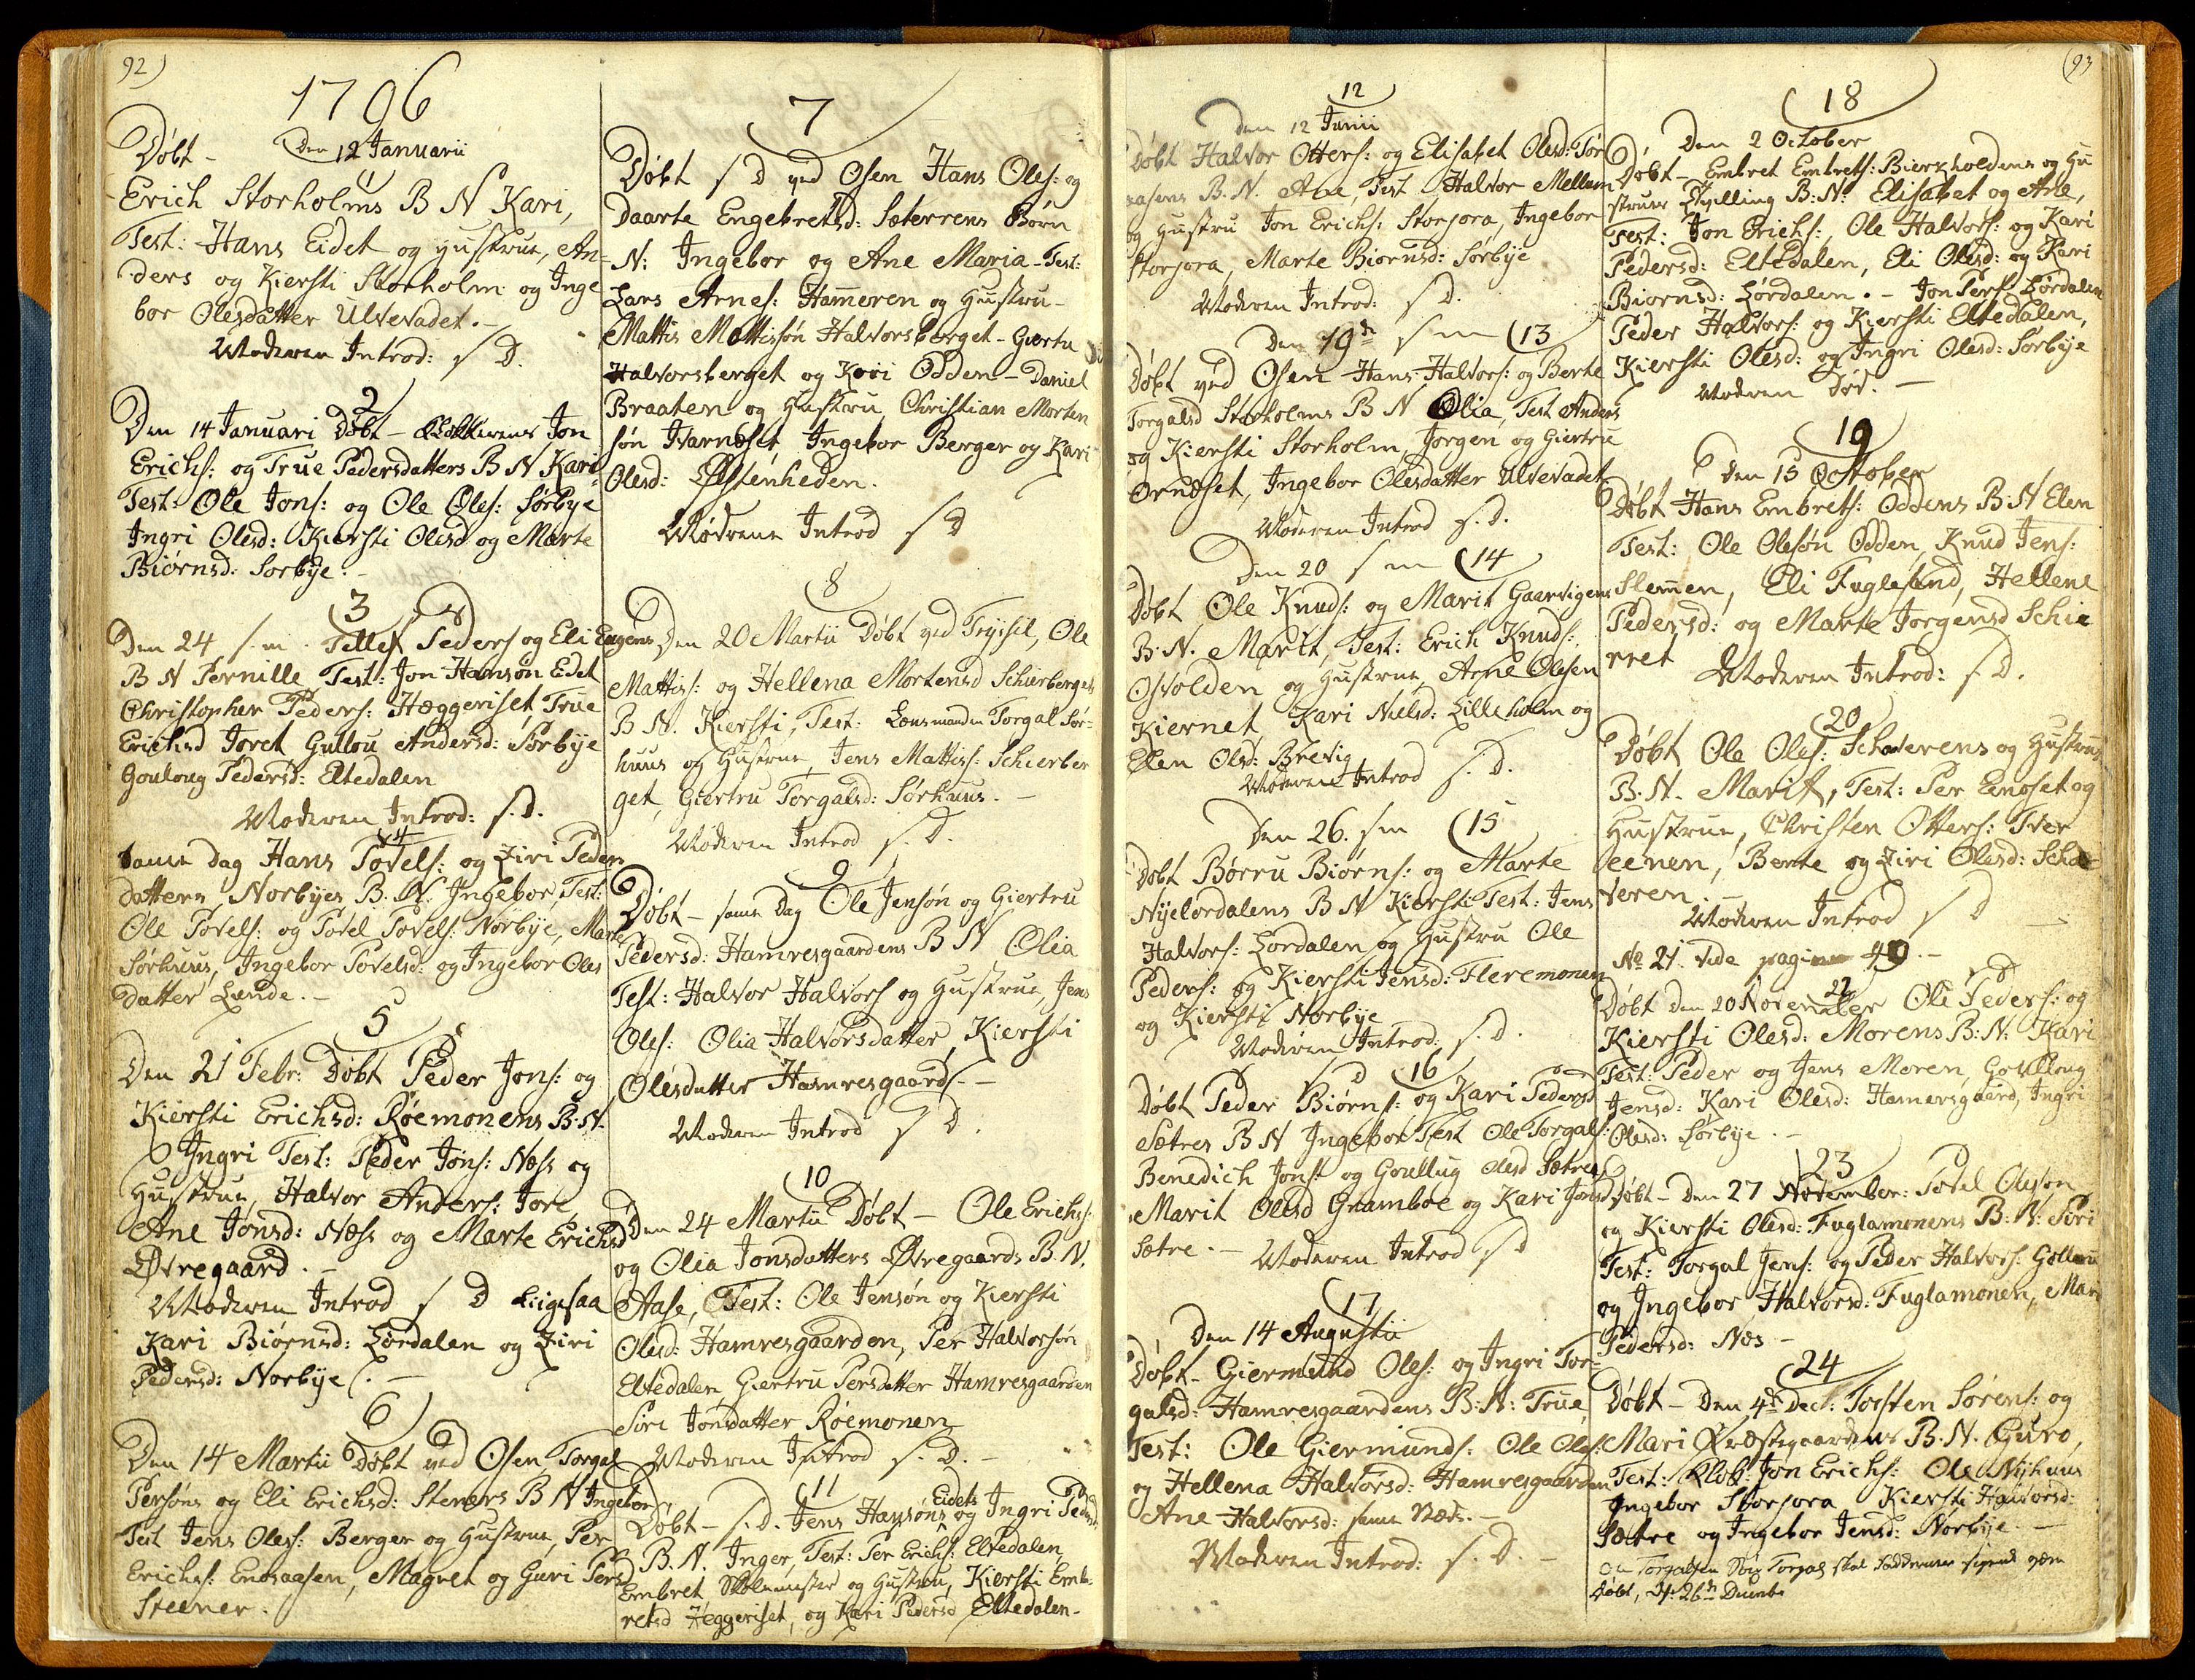 92)
1796
Døbt - Den 12 Januarii
Erich Storholms B N Kari,
Test: Hans Eidet og Hustrue, An=
ders og Kiersti Storholm og Inge
bor Olesdatter Ulvevadet. -
Moderen Introd: s D.
2
Den 14 Januari Døbt - Jon
Erichs: og True Pedersdatters B N Kari
Test: Ole Jons: og Ole Oles: Sørbye
Ingri Olesd: Kiersti Olesd og Marte
Biørnsd: Sorbye. -
3
Den 24 s. m. Tellef Peders og Eli Engens
B N Pernille Test: Jon Hansøn Eidet
Christopher Peders: Hæggeriset True
Erichsd Joret Gullou Andersd: Sørbye
Gouloug Pedersd: Eltedalen
Moderen Introd: s. D.
4
Samme Dag Hans Povels: og Ziri Peders
datters Norbyes B. N. Ingebor, Test:
Ole Povels: og Povel Povels: Norbye, Marte
Sørhuus, Ingebor Povelsd: og Ingebor Oles
datter Lunde. -
5
Den 21 Febr: Døbt Peder Jons: og
Kiersti Erichsd: Røemonens B: N.
Ingri Test: Peder Jons: Næss og
Hustrue, Halvor Anders: Jore
Ane Jonsd: Næss og Marte Erichsd
Øvregaard. -
Moderen Introd s D Ligesaa
Kari Biørnsd: Lørdalen og Ziri
Pedersd: Norbye. -
6
Den 14 Martii Døbt ved Osen Torgal
Persøns og Eli Erichsd: Steners B N Ingebor,
Test Jens Oles: Berger og Hustrue, Per
Erichs: Enersaasen, Magnet og Guri Pers
Steener.
7
Døbt s D ved Osen Hans Oles: og
Daarte Engebretsd: Sæterrens Børn
N: Ingebor og Ane Maria - Test:
Lars Arnes: Hammeren og Hustru -
Mattis Mattissøn Halvorsberget - Giertru
Halvorsberget og Kari Odden - Daniel
Braaten og Hustru, Christian Morten
søn Ivarnæset, Ingebor Berger og Kari
Olesd: Østenheden.
Mødrene Introd s D
8
Den 20 Martii Døbt ved Trysil, Ole
Mattiss: og Hellena Mortensd Schierbergets
B N. Kiersti, Test: Lensmanden Torgal Sør=
huus og Hustrue, Jens Mattiss: Schierber
get, Giertru Torgalsd: Sørhuus. -
Moderen Introd s. D.
9
Døbt - same Dag Ole Jensøn og Giertru
Pedersd: Hamresgaardens B N Olia
Test: Halvor Halvors og Hustrue, Jens
Oles: Olia Halvorsdatter, Kiersti
Olesdatter Hamresgaard. -
Moderen Introd s D.
10
Den 24 Martii Døbt - Ole Erichs:
og Olia Jonsdatters Øvregaards B. N.
Aase, Test: Ole Jensøn og Kiersti
Olesd: Hamresgaarden, Per Halvorsøn
Eltedalen Giertru Persdatter Hamresgaarden
Siri Jonsdatter Røemonen
Moderen Introd s. D. -
11
Døbt - s. D. Jens Hansøns Eidets og Ingri Pedersd:
B. N. Inger, Test: Per Erichs: Eltedalen,
Embret Skolemester og Hustrue, Kiersti Emb
retsd Heggeriset, og Kari Pedersd Eltedalen -
(93
12
Den 12 Junii
Døbt Halvor Otters: og Elisabet Olesd: Tør
aasens B. N. Ane, Test Halvor Mellum
og Hustru Jon Erichs: Storjora, Ingebor
Storjora, Marte Biørnsd: Sørbye
Moderen Introd: s D.
Den 19de s m 13
Døbt ved Osen Hans Halvors: og Berte
Torgalsd Storholms B N Olia, Test Anders
og Kiersti Storholm, Jorgen og Giertrue
Ornæset, Ingebor Olesdatter Ulvevadet
Moderen Introd s. D.
Den 20 s m 14
Døbt Ole Knuds: og Marit Gaarvigens
B. N. Marit, Test: Erich Knuds:
Osvolden og Hustrue, Arne Olesen
Kiernet, Kari Nielsd: Lilleholm og
Elen Olsd: Brevig
Moderen Introd s. D.
Den 26. s m 15
Døbt Børru Biørns: og Marte
Nyelordalens B N Kiersti Test: Jens
Halvors: Lordalen og Hustru Ole
Peders: og Kiersti Jensd: Fleremonen
og Kiersti Norbye
Moderen Introd: s. D.
s D 16
Døbt Peder Biørns: og Kari Pedersd
Sætres B N Ingebor Test Ole Torgals:
Benedich Jons: og Goullug Olesd Sætre
Marit Olesd Gramboe og Kari Jonsd
Sætre. - Moderen Introd s D
17
Den 14 Augustii
Døbt - Giermund Oles: og Ingri Tor=
galsd: Hamresgaardens B: N: True,
Test: Ole Giermunds: Ole Oles:
og Hellena Halvorsd: Hamresgaarden
Ane Halvorsd: samme Stæds. -
Moderen Introd: s. D. -
18
Den 2 October
Døbt - Embret Embrets: Bierkholdens og Hu
strues Tvilling B: N: Elisabet og Ane,
Test: Jon Erichs:, Ole Halvors: og Kari
Pedersd: Eltedalen, Eli Olesd: og Kari
Biornsd: Lordalen. - Jon Pers: Lørdalen
Peder Halvors: og Kiersti Eltedalen,
Kiersti Olesd: og Ingri Olesd: Sorbye
Moderen død. -
19
Den 15 October
Døbt Hans Embrets: Oddens B: N Elen
Test: Ole Olesøn Odden, Knud Jens:
Slemen, Eli Fuglesund, Hellene
Pedersd: og Marte Jorgensd Schie
rret Moderen Introd: s D.
20
Døbt Ole Oles: Schaverens og Hustrues
B. N. Marit, Test: Per Enoset og
Hustrue, Christen Otters: Tver
eenen, Bente og Ziri Olesd: Scha
veren. -
Moderen Introd s D -
No 21. vide pagina 49. -
22
Døbt Den 20 November Ole Peders: og
Kiersti Olesd: Morens B: N: Kari
Test: Peder og Jens Moren, Goulloug
Jensd: Kari Olesd: Hamersgaard, Ingri
Olesd: Sørbye. -
23
Døbt - Den 27 November: Povel Olesøn
og Kiersti Olesd: Fuglamonens B: N: Siri
Test: Torgal Jens: og Peder Halvors: Gallaau
og Ingebor Halvorsd: Fuglamonen, Mari
Pedersd: Næs -
24
Døbt - Den 4de Dec: Torsten Sørens: og
Mari Præstgaardens B. N. Guro,
Test: Klok: Jon Erichs: Ole Nyhuus
Ingebor Storjora Kiersti Halvorsd:
Sætre og Ingebor Jensd: Norbye. -
Ole Torgalsen Søn Torgal skal være
Døbt, D: 26de Decemb: